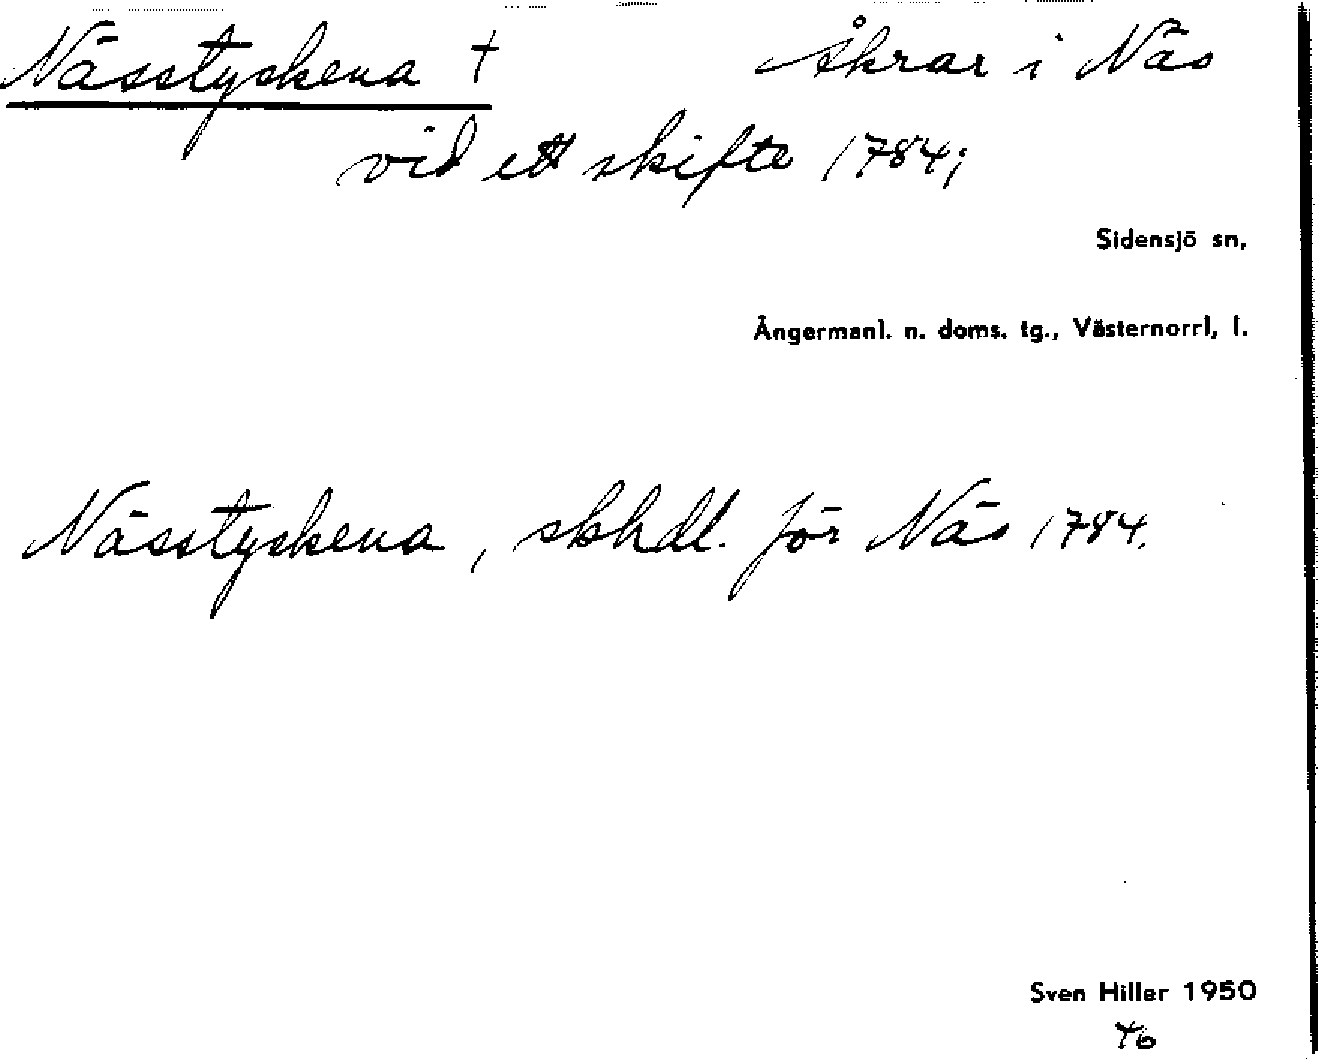 Nässtyckena † Åkrar i Näs
vid ett skifte 1784;
Sidensjö sn,
Ångermanl. n. doms. tg., Västernorrl. l.
Nässtyckena, skhdl. för Näs 1784.
Sven Hiller 1950